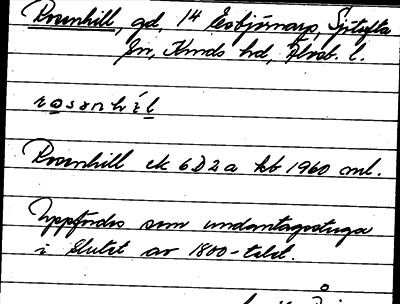 Rosenhill, gd, 14 Esbjörnarp, Sjötofta
sn, Kinds hd, Älvsb. l.
rosənhíl
Rosenhill ek 6D2a kb 1960 ml.
Uppfördes som undantagsstuga
i slutet av 1800-talet.